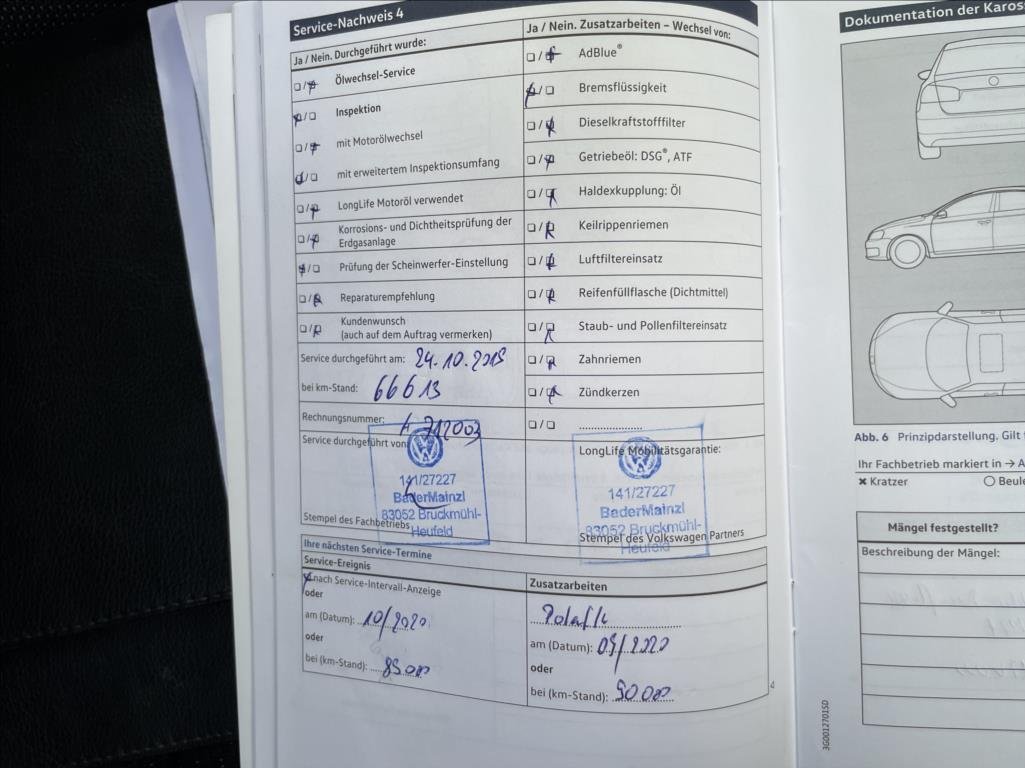 Service-Nachweis 4
Ja / Nein. Durchgeführt wurde:
Ölwechsel-Service
Inspektion
mit Motorölwechsel
mit erweitertem Inspektionsumfang
LongLife Motoröl verwendet
Korrosions- und Dichtheitsprüfung der
Erdgasanlage
Prüfung der Scheinwerfer-Einstellung
Reparaturempfehlung
Kundenwunsch
(auch auf dem Auftrag vermerken)
Service durchgeführt am: 24.10.2019
bei km-Stand: 66613
Rechnungsnummer:
Service durchgeführt von
141/27227
BaderMainzl
83052 Bruckmühl-
Heufeld
Stempel des Fachbetriebs
Ja / Nein. Zusatzarbeiten – Wechsel von:
AdBlue®
Bremsflüssigkeit
Dieselkraftstofffilter
Getriebeöl: DSG®, ATF
Haldexkupplung: Öl
Keilrippenriemen
Luftfiltereinsatz
Reifenfüllflasche (Dichtmittel)
Staub- und Pollenfiltereinsatz
Zahnriemen
Zündkerzen
LongLife Mobilitätsgarantie:
141/27227
BaderMainzl
83052 Bruckmühl-
Heufeld
Stempel des Volkswagen Partners
Ihre nächsten Service-Termine
Service-Ereignis
nach Service-Intervall-Anzeige
oder
am (Datum): 10/2020
oder
bei (km-Stand):
Zusatzarbeiten
am (Datum): 09/2020
oder
bei (km-Stand): 90000
4
Dokumentation der Karos
Abb. 6 Prinzipdarstellung. Gilt
Ihr Fachbetrieb markiert in → A
✖ Kratzer ○ Beule
Mängel festgestellt?
Beschreibung der Mängel:
3G0012701SD